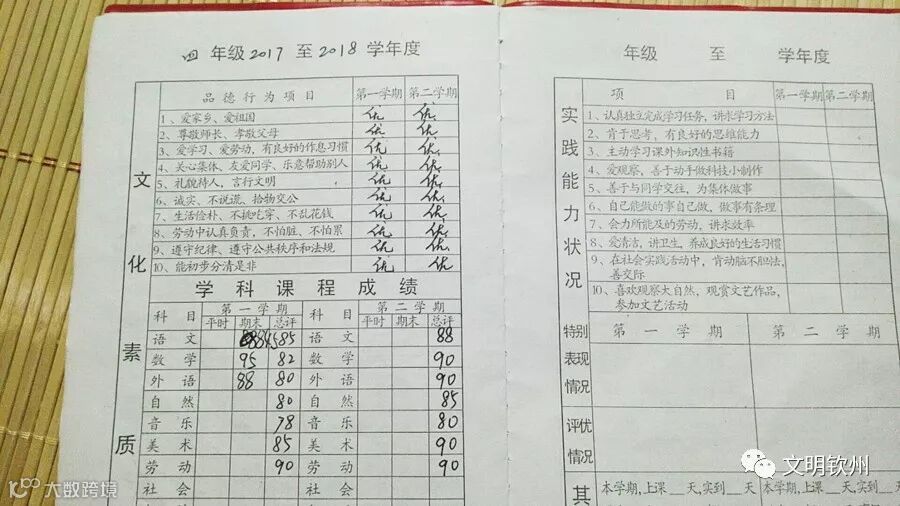 四 年级 2017 至 2018 学年度
文化素质
品德行为项目 第一学期 第二学期
1、爱家乡、爱祖国 优 优
2、尊敬师长、孝敬父母 优 优
3、爱学习、爱劳动，有良好的作息习惯 优 优
4、关心集体、友爱同学、乐意帮助别人 优 优
5、礼貌待人，言行文明 优 优
6、诚实、不说谎、拾物交公 优 优
7、生活俭朴、不挑吃穿、不乱花钱 优 优
8、劳动中认真负责，不怕脏、不怕累 优 优
9、遵守纪律、遵守公共秩序和法规 优 优
10、能初步分清是非 优 优
学科课程成绩
科目 第一学期 科目 第二学期
平时 期末 总评 平时 期末 总评
语文 85 语文 88
数学 95 82 数学 90
外语 88 80 外语 90
自然 80 自然 85
音乐 78 音乐 80
美术 85 美术 90
劳动 90 劳动 90
社会 社会
年级 至 学年度
实践能力状况
项目 第一学期 第二学期
1、认真独立完成学习任务，讲求学习方法
2、肯于思考，有良好的思维能力
3、主动学习课外知识性书籍
4、爱观察，善于动手做科技小制作
5、善于与同学交往，为集体做事
6、自己能做的事自己做，做事有条理
7、会力所能及的劳动，讲求效率
8、爱清洁，讲卫生，养成良好的生活习惯
9、在社会实践活动中，肯动脑不胆怯，
善交际
10、喜欢观察大自然，观赏文艺作品，
参加文艺活动
特别表现情况 第一学期 第二学期
评优情况
其
本学期，上课__天，实到__天 本学期，上课__天，实到__天
文明钦州
大数跨境